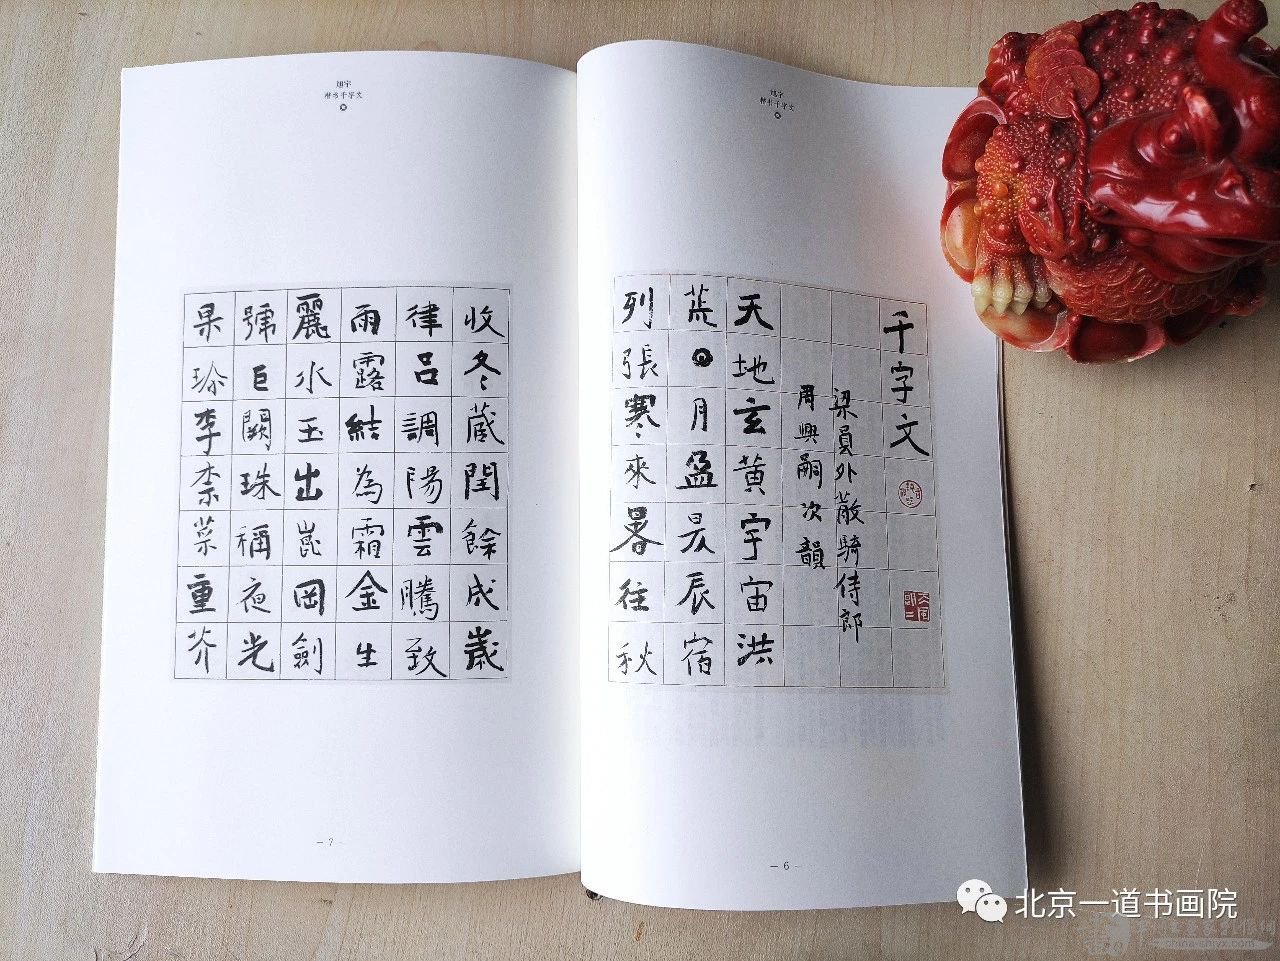 旭宇
楷书千字文
千字文
梁員外散騎侍郎
周興嗣次韻
天地玄黄宇宙洪
荒日月盈昃辰宿
列張寒來暑往秋
— 6 —
旭宇
楷书千字文
收冬藏閏餘成歲
律呂調陽雲騰致
雨露結為霜金生
麗水玉出崑岡劍
號巨闕珠稱夜光
果珍李柰菜重芥
— 7 —
北京一道书画院